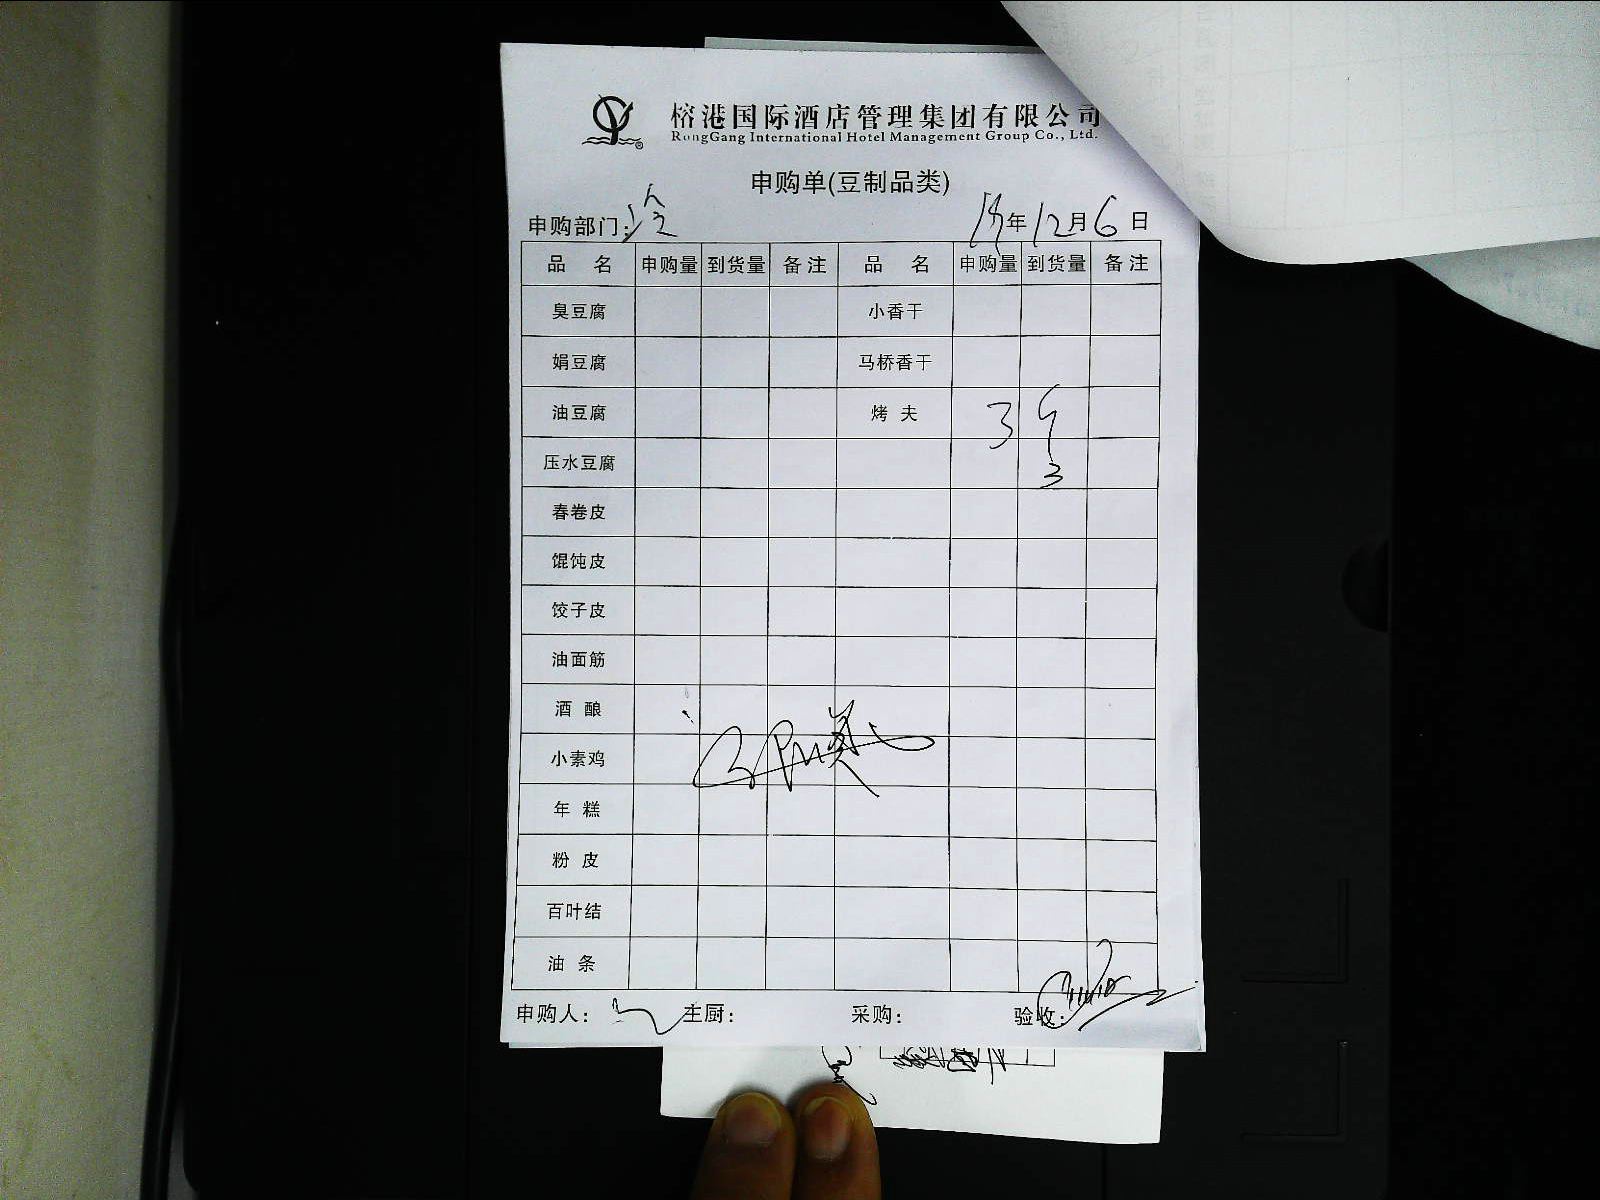 榕港国际酒店管理集团有限公司
RongGang International Hotel Management Group Co., Ltd.
申购单(豆制品类)
申购部门: 年12月6日
品 名 申购量 到货量 备注 品 名 申购量 到货量 备注
臭豆腐 小香干
娟豆腐 马桥香干
油豆腐 烤 夫 3
压水豆腐 3
春卷皮
馄饨皮
饺子皮
油面筋
酒 酿
小素鸡
年 糕
粉 皮
百叶结
油 条
申购人: 主厨: 采购: 验收: